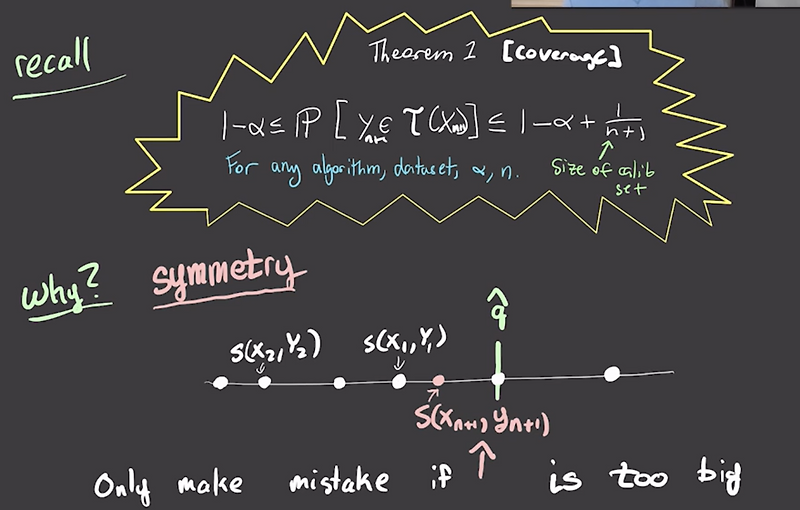 recall
Theorem 1 [Coverage]
1-α ≤ ℙ [ Yₙ₊₁ ∈ τ(Xₙ₊₁)] ≤ 1-α + 1/(n+1)
For any algorithm, dataset, α, n.
Size of calib
set
why? symmetry
q̂
S(X₂,Y₂) S(X₁,Y₁)
S(Xₙ₊₁, Yₙ₊₁)
Only make mistake if ↑ is too big